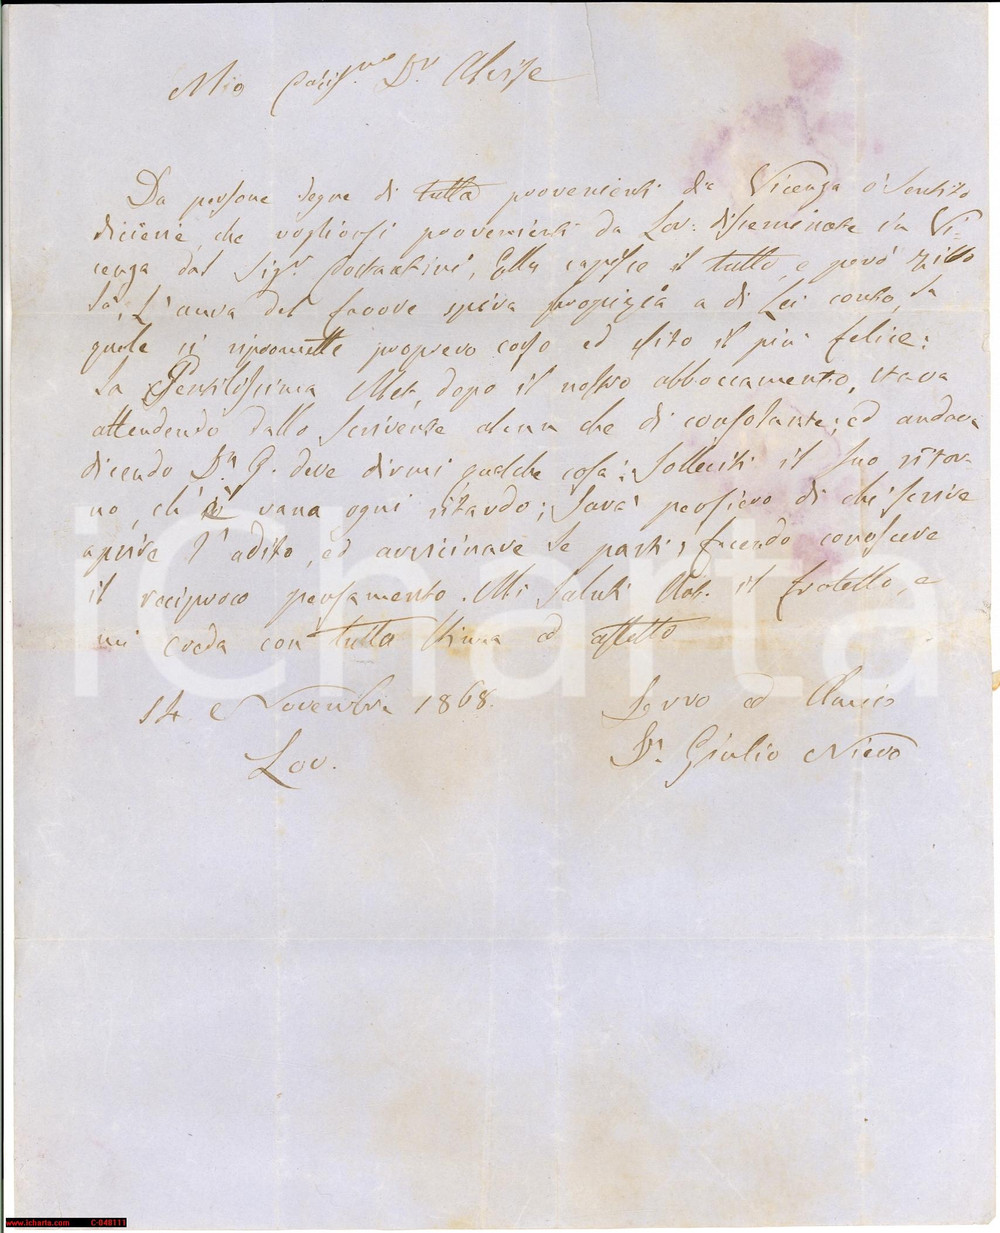 Mio Cariss.mo D.r Alvise
Da persone degne di tutta provenienti da Vicenza ò sentito
dicerie, che vogliansi provenienti da Lov: disseminate in Vi-
cenza dal Sig.r Costantini, Ella capisce il tutto, e però zitto
là; L'aura del favore spira propizia a di Lei conto, la
quale si ripromette prospero corso ed esito il più felice:
La Gentilissima Met, dopo il nostro abboccamento, stava
attendendo dallo scrivente alcun che di consolante; ed andava
dicendo D.r G. deve dirmi qualche cosa: Solleciti il suo ritor-
no, ch'è vana ogni ritardo; Sarà pensiero di chi scrive
aprire l'adito, ed avvicinare le parti, facendo conoscere
il reciproco pensamento. Mi saluti il fratello, e
mi creda con tutta stima ed affetto
14 Novembre 1868.
Servo ed Amico
Lov.
D.r Giulio Nievo
iCharta
www.icharta.com C-040111